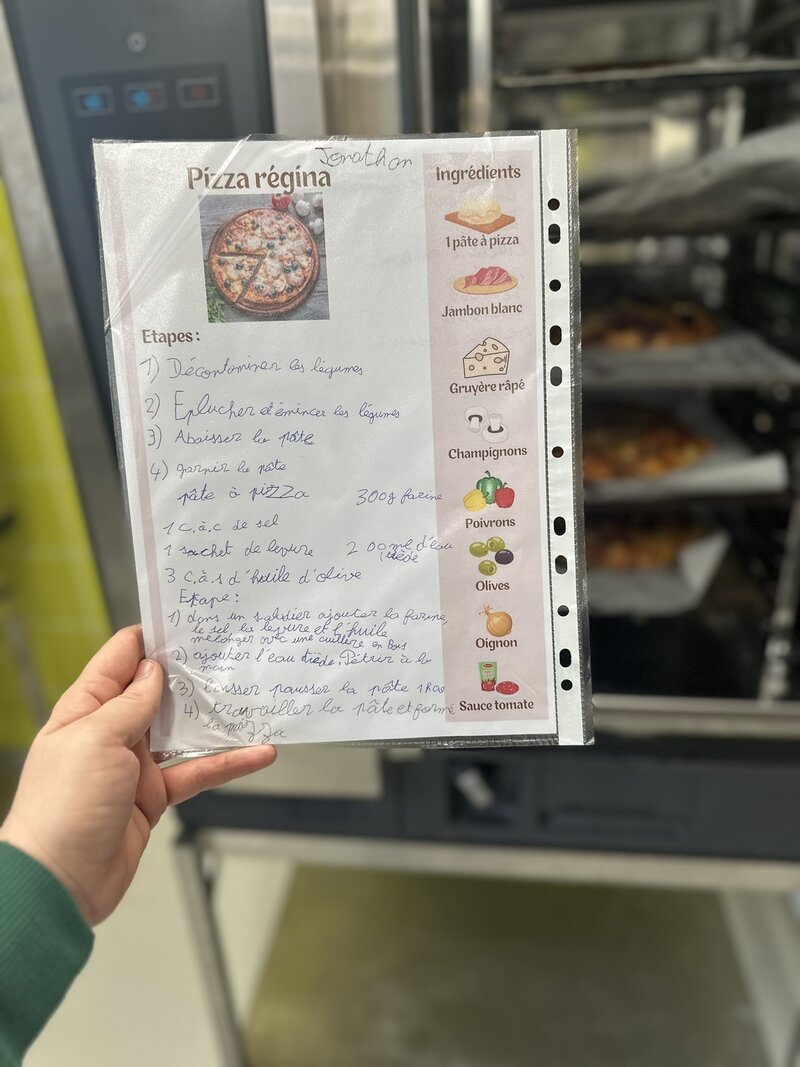 Jonathan
Pizza régina
Etapes :
1) Décontaminer les légumes
2) Eplucher et émincer les légumes
3) Abaisser la pâte
4) garnir la pâte
pâte à pizza 300g farine
1 c.à.c de sel
1 sachet de levure 200 ml d'eau
tiède
3 c.à.s d'huile d'olive
Etape :
1) dans un saladier ajouter la farine,
le sel la levure et l'huile
mélanger avec une cuillère en bois
2) ajouter l'eau tiède. Pétrir à la
main
3) laisser pousser la pâte 1h00
4) travailler la pâte et formé
la pizza
Ingrédients
1 pâte à pizza
Jambon blanc
Gruyère râpé
Champignons
Poivrons
Olives
Oignon
Sauce tomate